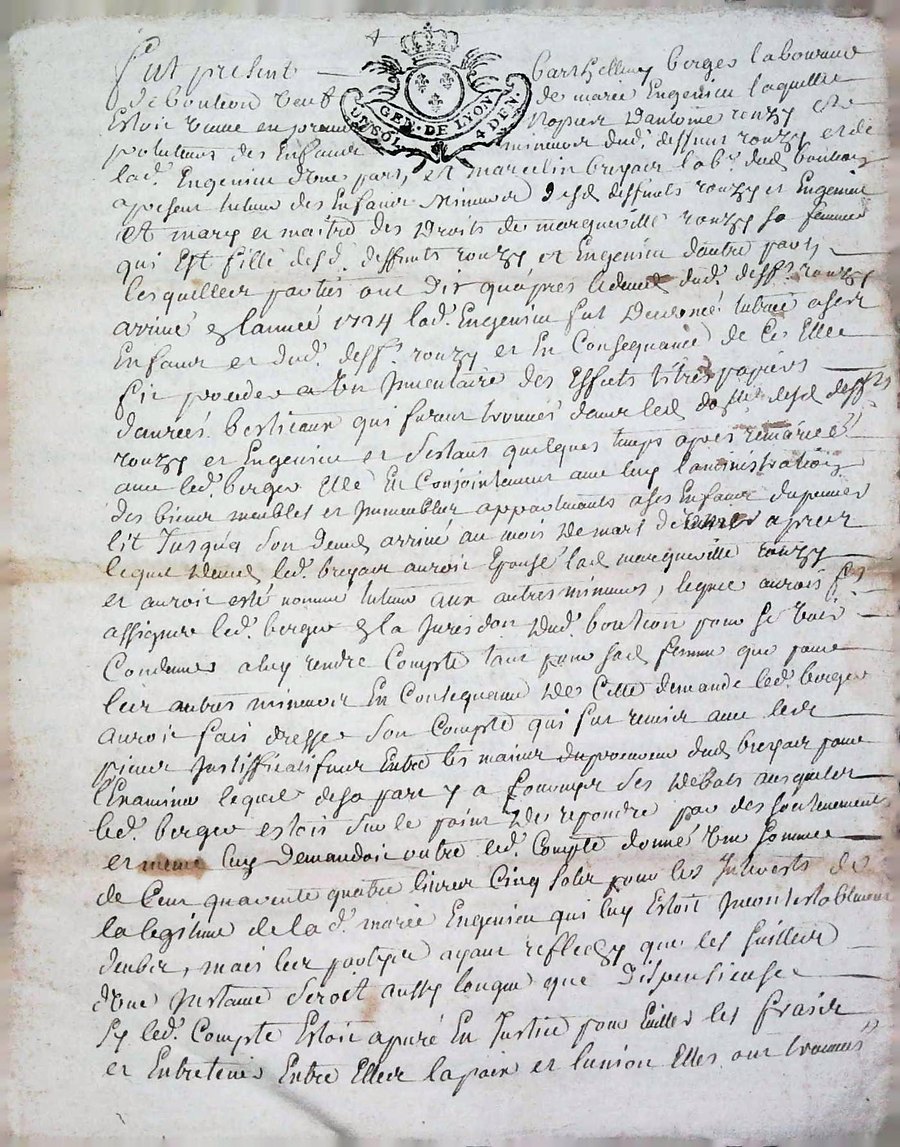 Fut present barthellemy berger laboureur
de boutheon veuf de marie Engenieu laquelle
Estoit veuve en premiere Nopces d'antoine rouzy
GEN. DE LYON
UN SOL 4 DEN.
des Enfans mineurs dud. deffunt rouzy et de
lad. Engenieu d'Une part, et marcelin breyair lab.r dud boutheon
apresent tuteur des Enfans Mineurs desd deffunts rouzy et Engenieu
et mary et maitre des Droits de margueritte rouzy sa femme
qui Est fille desd. deffunts rouzy et Engenieu d'autre part,
lesquelles parties ont Dit qu'apres ledeced dud. deff.t rouzy
arrivé En lannée 1724 lad. Engenieu fut tutrice a ses
Enfans et dud. deff.t rouzy et En Consequance de Ce Elle
fit proceder a Un Inventaire des Effets titres papiers
danrées bestieaux qui furent trouvés dans led desd deffts
rouzy et Engenieu et s'estant quelques temps apres remariée
avec led. berger Elle En Conjointement avec luy l'administration
des biens meubles et Immeubles appartenants a ses Enfans du premier
lit Jusqu'a son deced arrivé au mois de mars apres
lequel deced led. breyair auroit Epousé lad margueritte rouzy
et auroit esté nommé tuteur aux autres mineurs, lequel auroit fait
assigner led. berger En la Jurisdon dud. boutheon pour se voir
Condamner a luy rendre Compte tant pour sad femme que pour
les autres mineurs En Consequance de Cette demande led. berger
auroit fait dresser son Compte qui fut remis avec les
pieces Justifficatives Entre les mains du procureur dud breyair pour
l'Examiner lequel de sa part y a fourny ses debats ausquels
led. berger estoit sur le point de repondre par des soutenements
et meme luy demandoit outre led. Compte donné Une somme
de Cent quarente quatre livres Cinq sols pour les Interests de
la legitime de la d. marie Engenieu qui luy Estoit Incontestablement
deube, mais les parties ayant reflechy que les suittes
d'Une Instance seroit aussy longue que dispensieuse
sy led. Compte Estoit apuré En Justice pour Eviter les fraix
et Entretenir Entre Elles la paix et lunion Elles ont